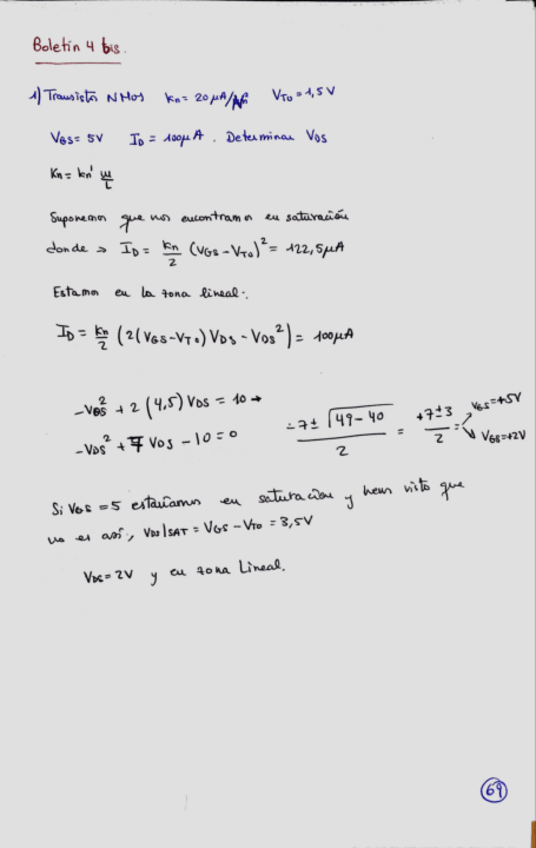 Boletín 4 bis.
1) Transistor NMOS kn = 20 μA/V² VTO = 1,5 V
VGS = 5V ID = 100μA. Determinar VDS
Kn = kn' W/L
Suponemos que nos encontramos en saturación
donde → ID = kn/2 (VGS - VTO)² = 122,5μA
Estamos en la zona lineal:
ID = kn/2 (2(VGS-VTO) VDS - VDS²) = 100μA
-VDS² + 2 (4,5) VDS = 10 →
-VDS² + 7 VDS - 10 = 0
-7 ± √(49 - 40) / 2 = +7 ± 3 / 2 = VGS = +5V
VGS = +2V
Si VGS = 5 estaríamos en saturación y hemos visto que
no es así, VDS|SAT = VGS - VTO = 3,5V
VDS = 2V y en zona Lineal.
69